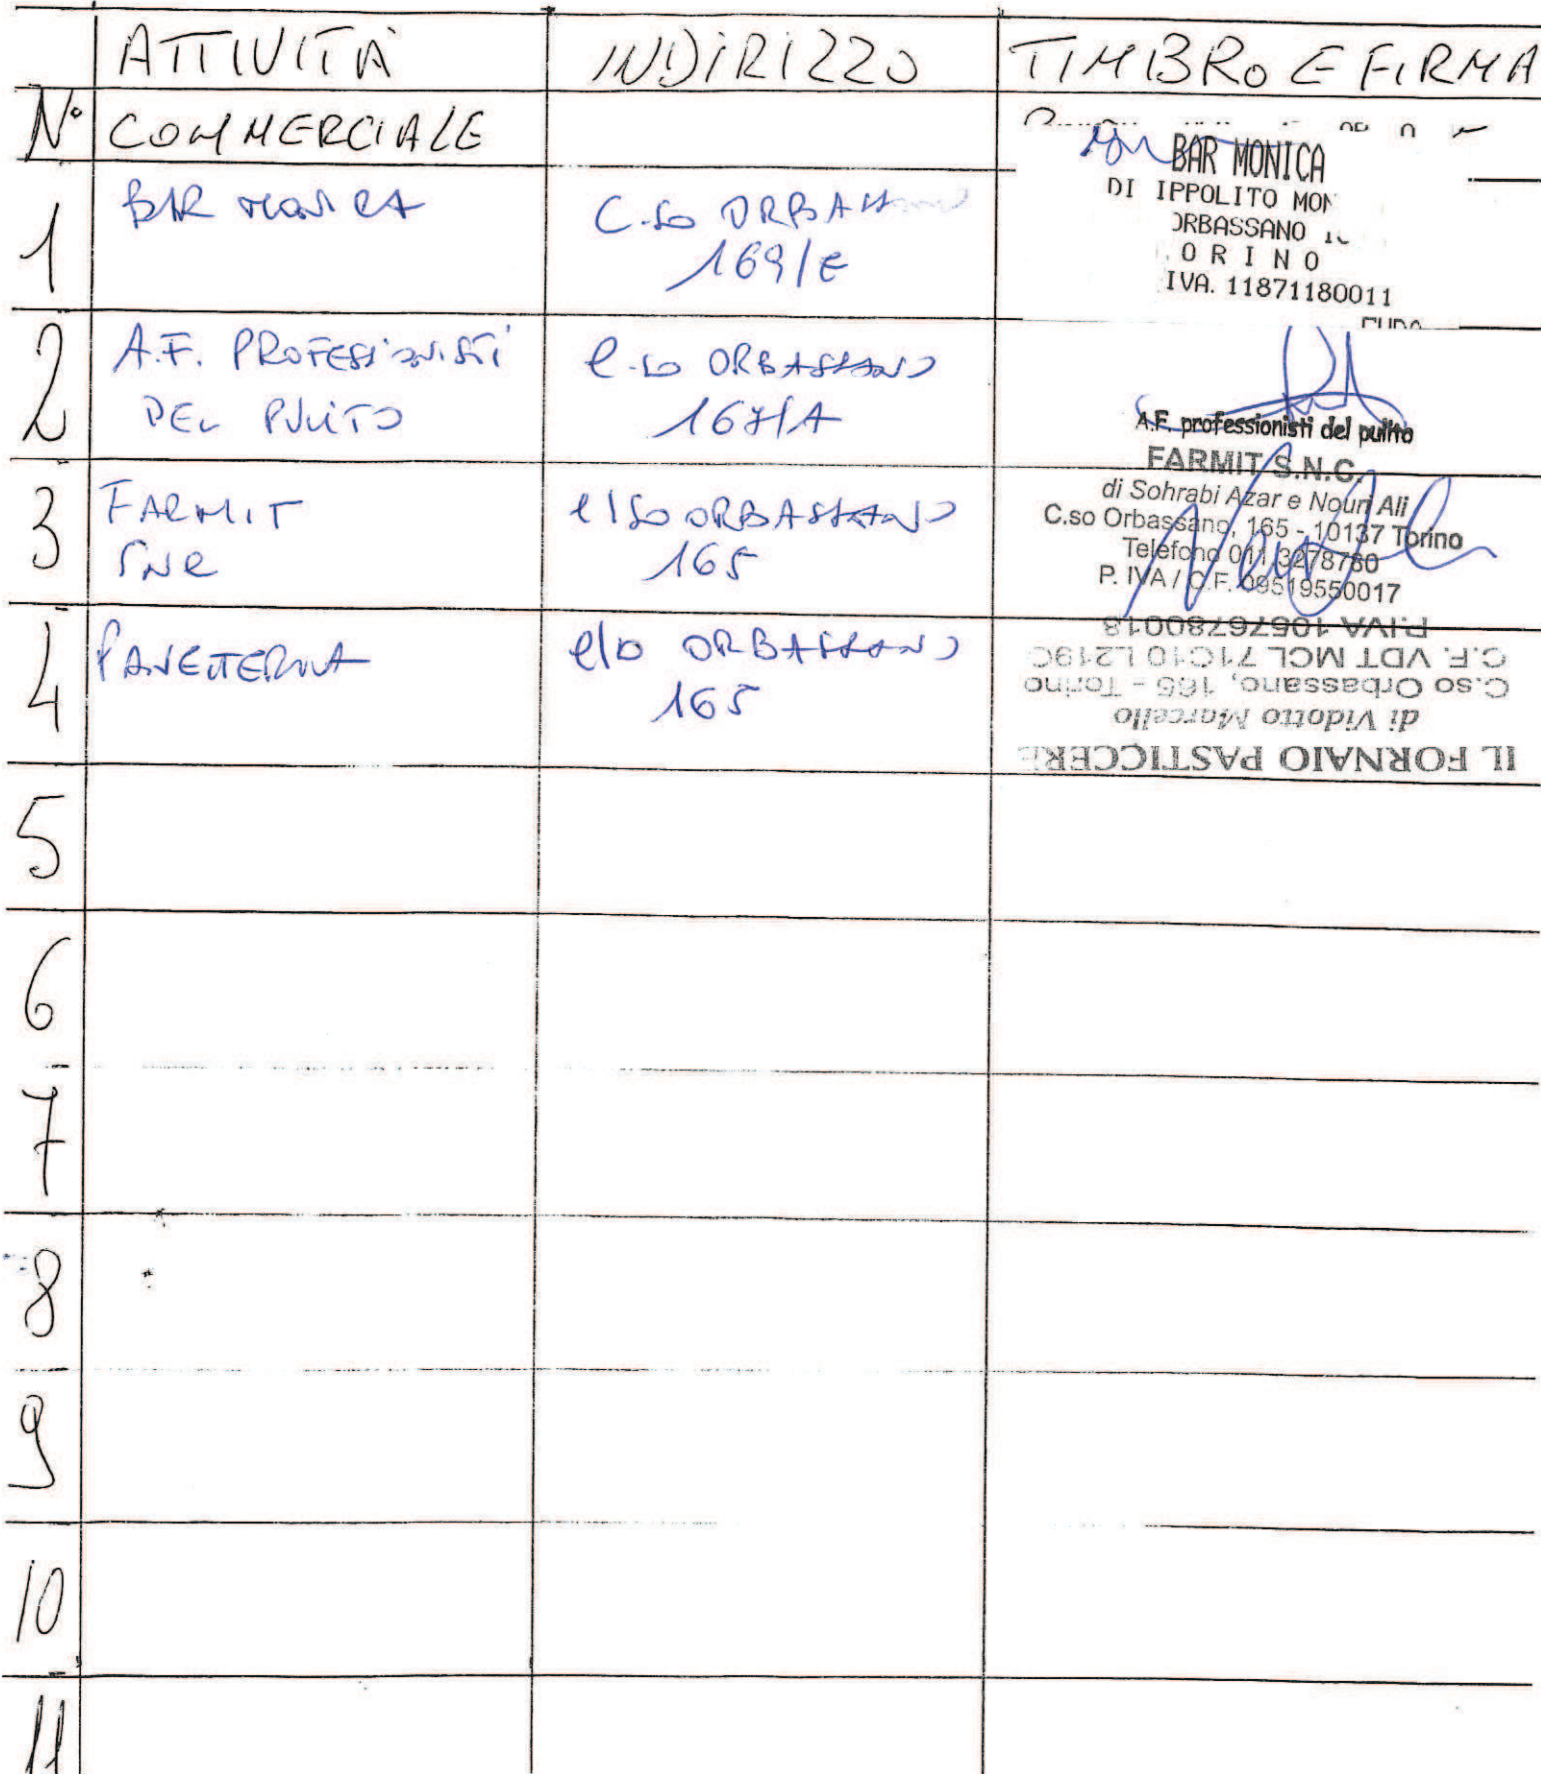 ATTIVITÀ INDIRIZZO TIMBRO E FIRMA
N° COMMERCIALE
1 BAR MONICA C.so ORBASSANO
169/E
BAR MONICA
DI IPPOLITO MON
ORBASSANO
ORINO
IVA. 11871180011
2 A.F. PROFESSIONISTI C.so ORBASSANO
DEL PULITO 167/A
A.F. professionisti del pulito
3 FARMIT C/SO ORBASSANO
SNC 165
FARMIT S.N.C.
di Sohrabi Azar e Nouri Ali
C.so Orbassano, 165 - 10137 Torino
Telefono 011,3278780
P. IVA / C.F. 09519550017
4 PANETTERIA C/SO ORBASSANO
165
IL FORNAIO PASTICCERE
di Vidotto Marcello
C.so Orbassano, 165 - Torino
C.F. VDT MCL 71C10 L219C
P.IVA 10676780018
5
6
7
8
9
10
11